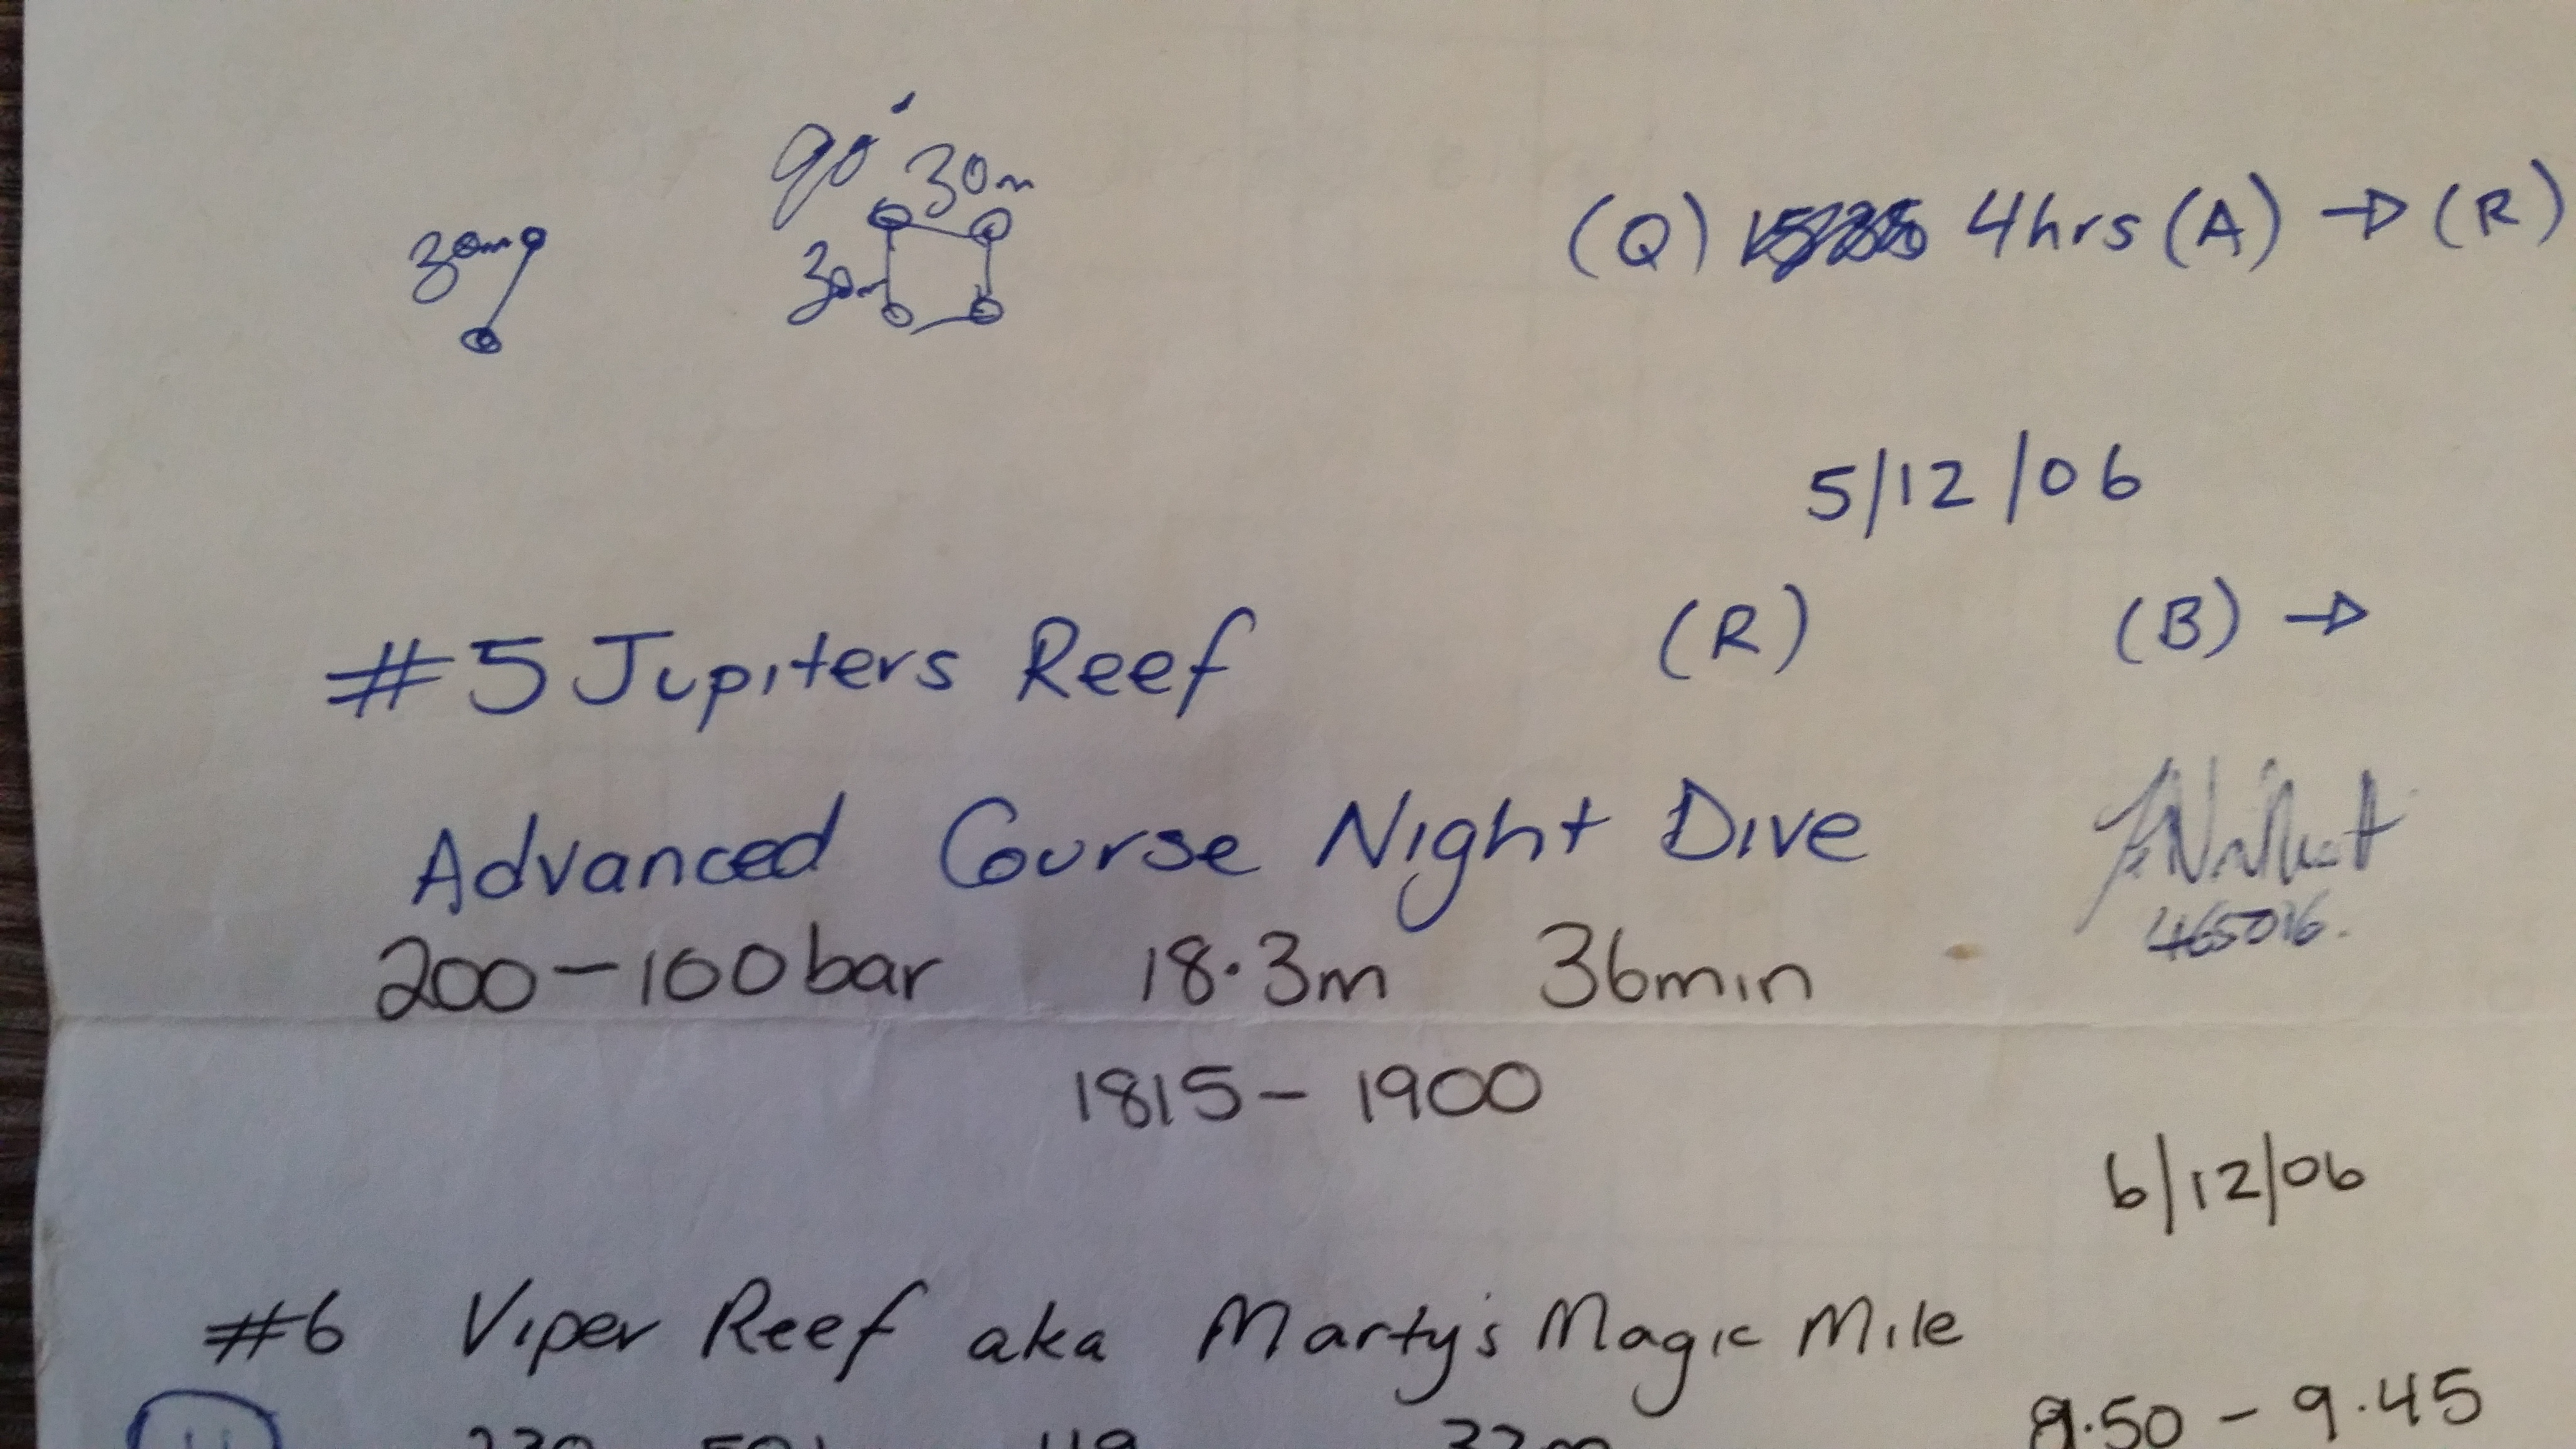 90° 30m
30m
30m
(Q) 4hrs (A) → (R)
5/12/06
(R) (B) →
#5 Jupiters Reef
Advanced Course Night Dive
465016.
200-100bar 18.3m 36min
1815-1900
6/12/06
#6 Viper Reef aka Marty's Magic Mile
9.50 - 9.45